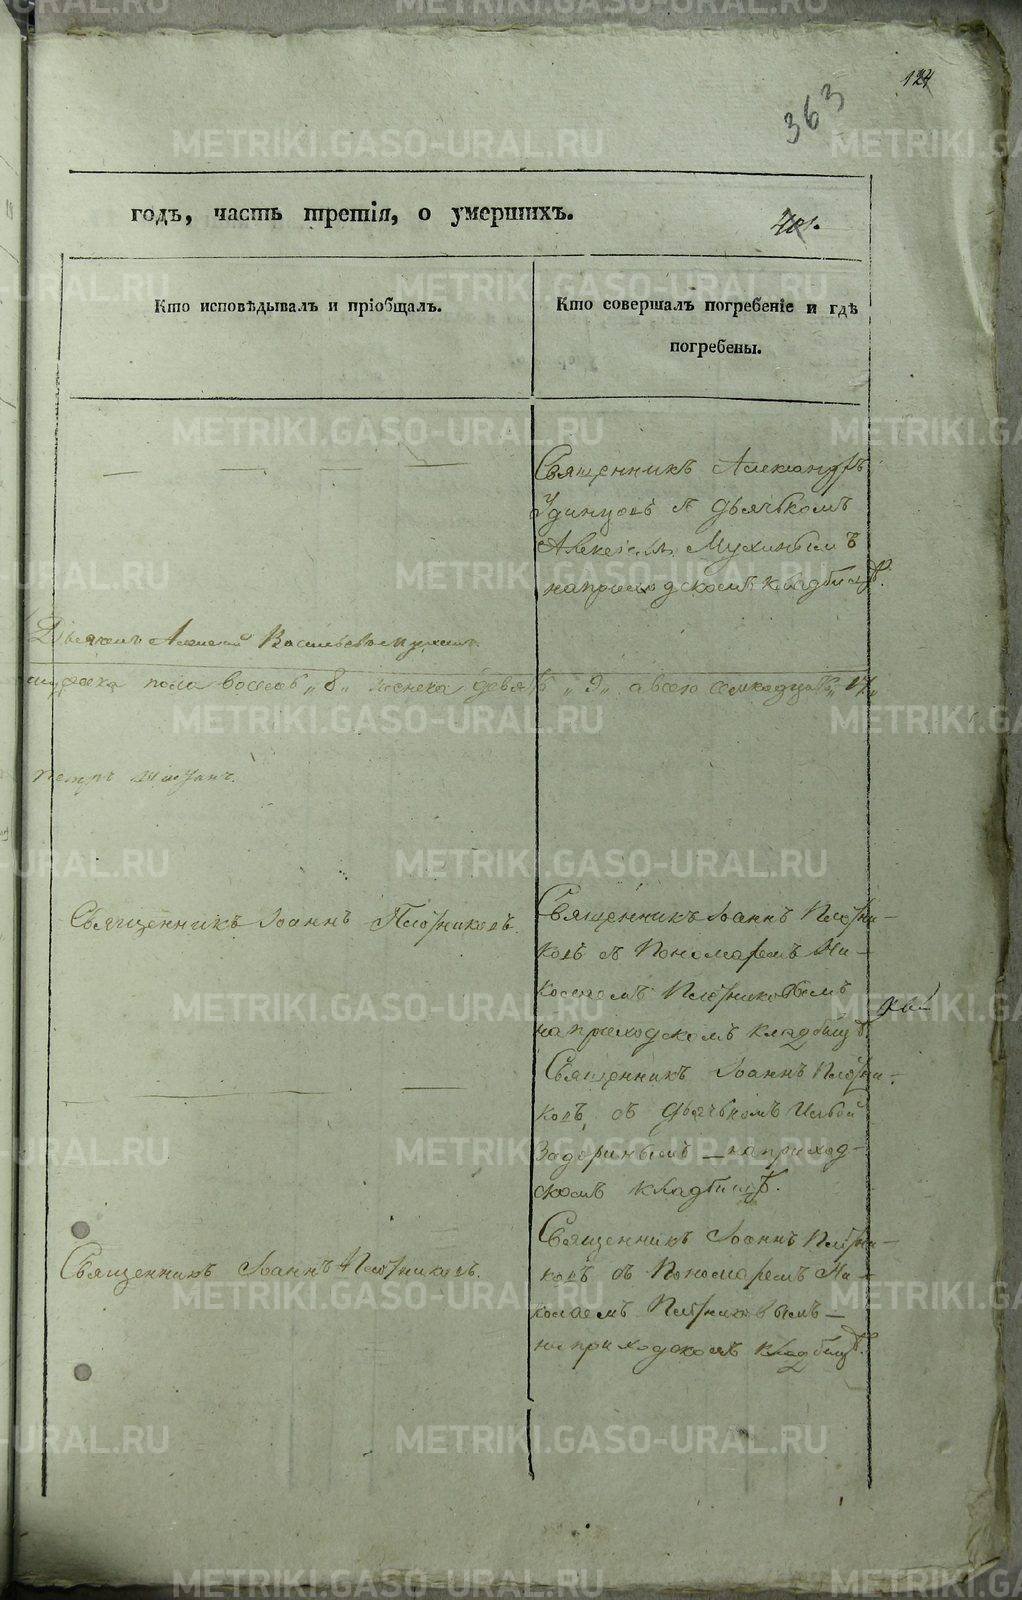 124
363
годъ, часть третія, о умершихъ.
401.
Кто исповѣдывалъ и пріобщалъ.
Кто совершалъ погребеніе и гдѣ
погребены.
Священникъ Александръ
Удинцовъ съ дьячькомъ
Алексіемъ Мухинымъ
на приходскомъ кладбищѣ.
Алексей Васильевъ Мухинъ
мужеска пола восемь „8„ женска девять „9„ а всего семнадцать „17„
Священникъ Іоаннъ Плотниковъ.
Священникъ Іоаннъ Плотни-
ковъ съ Пономаремъ Ни-
колаемъ Плотниковымъ
на приходскомъ кладбищѣ.
Священникъ Іоаннъ Плотни-
ковъ, съ дьячькомъ Ильёй
Задоринымъ – на приход-
скомъ кладбищѣ.
Священникъ Іоаннъ Плотниковъ.
Священникъ Іоаннъ Плотни-
ковъ съ Пономаремъ Ни-
колаемъ Плотниковымъ –
на приходскомъ кладбищѣ.
METRIKI.GASO-URAL.RU